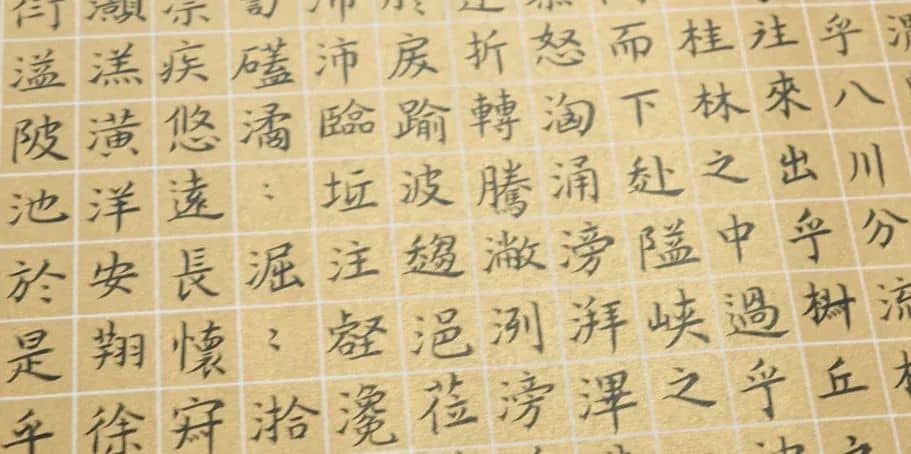 乎八川分流
往來出乎椒丘
桂林之中過乎
而下赴隘峽之
怒洶涌滂湃滭
折轉騰潎洌滂
戾踰波趨浥蒞
沛沛臨坻注壑瀺
訇礚潏：淈：湁
疾悠遠長懷寂
灝溔潢洋安翔徐
衍溢陂池於是乎